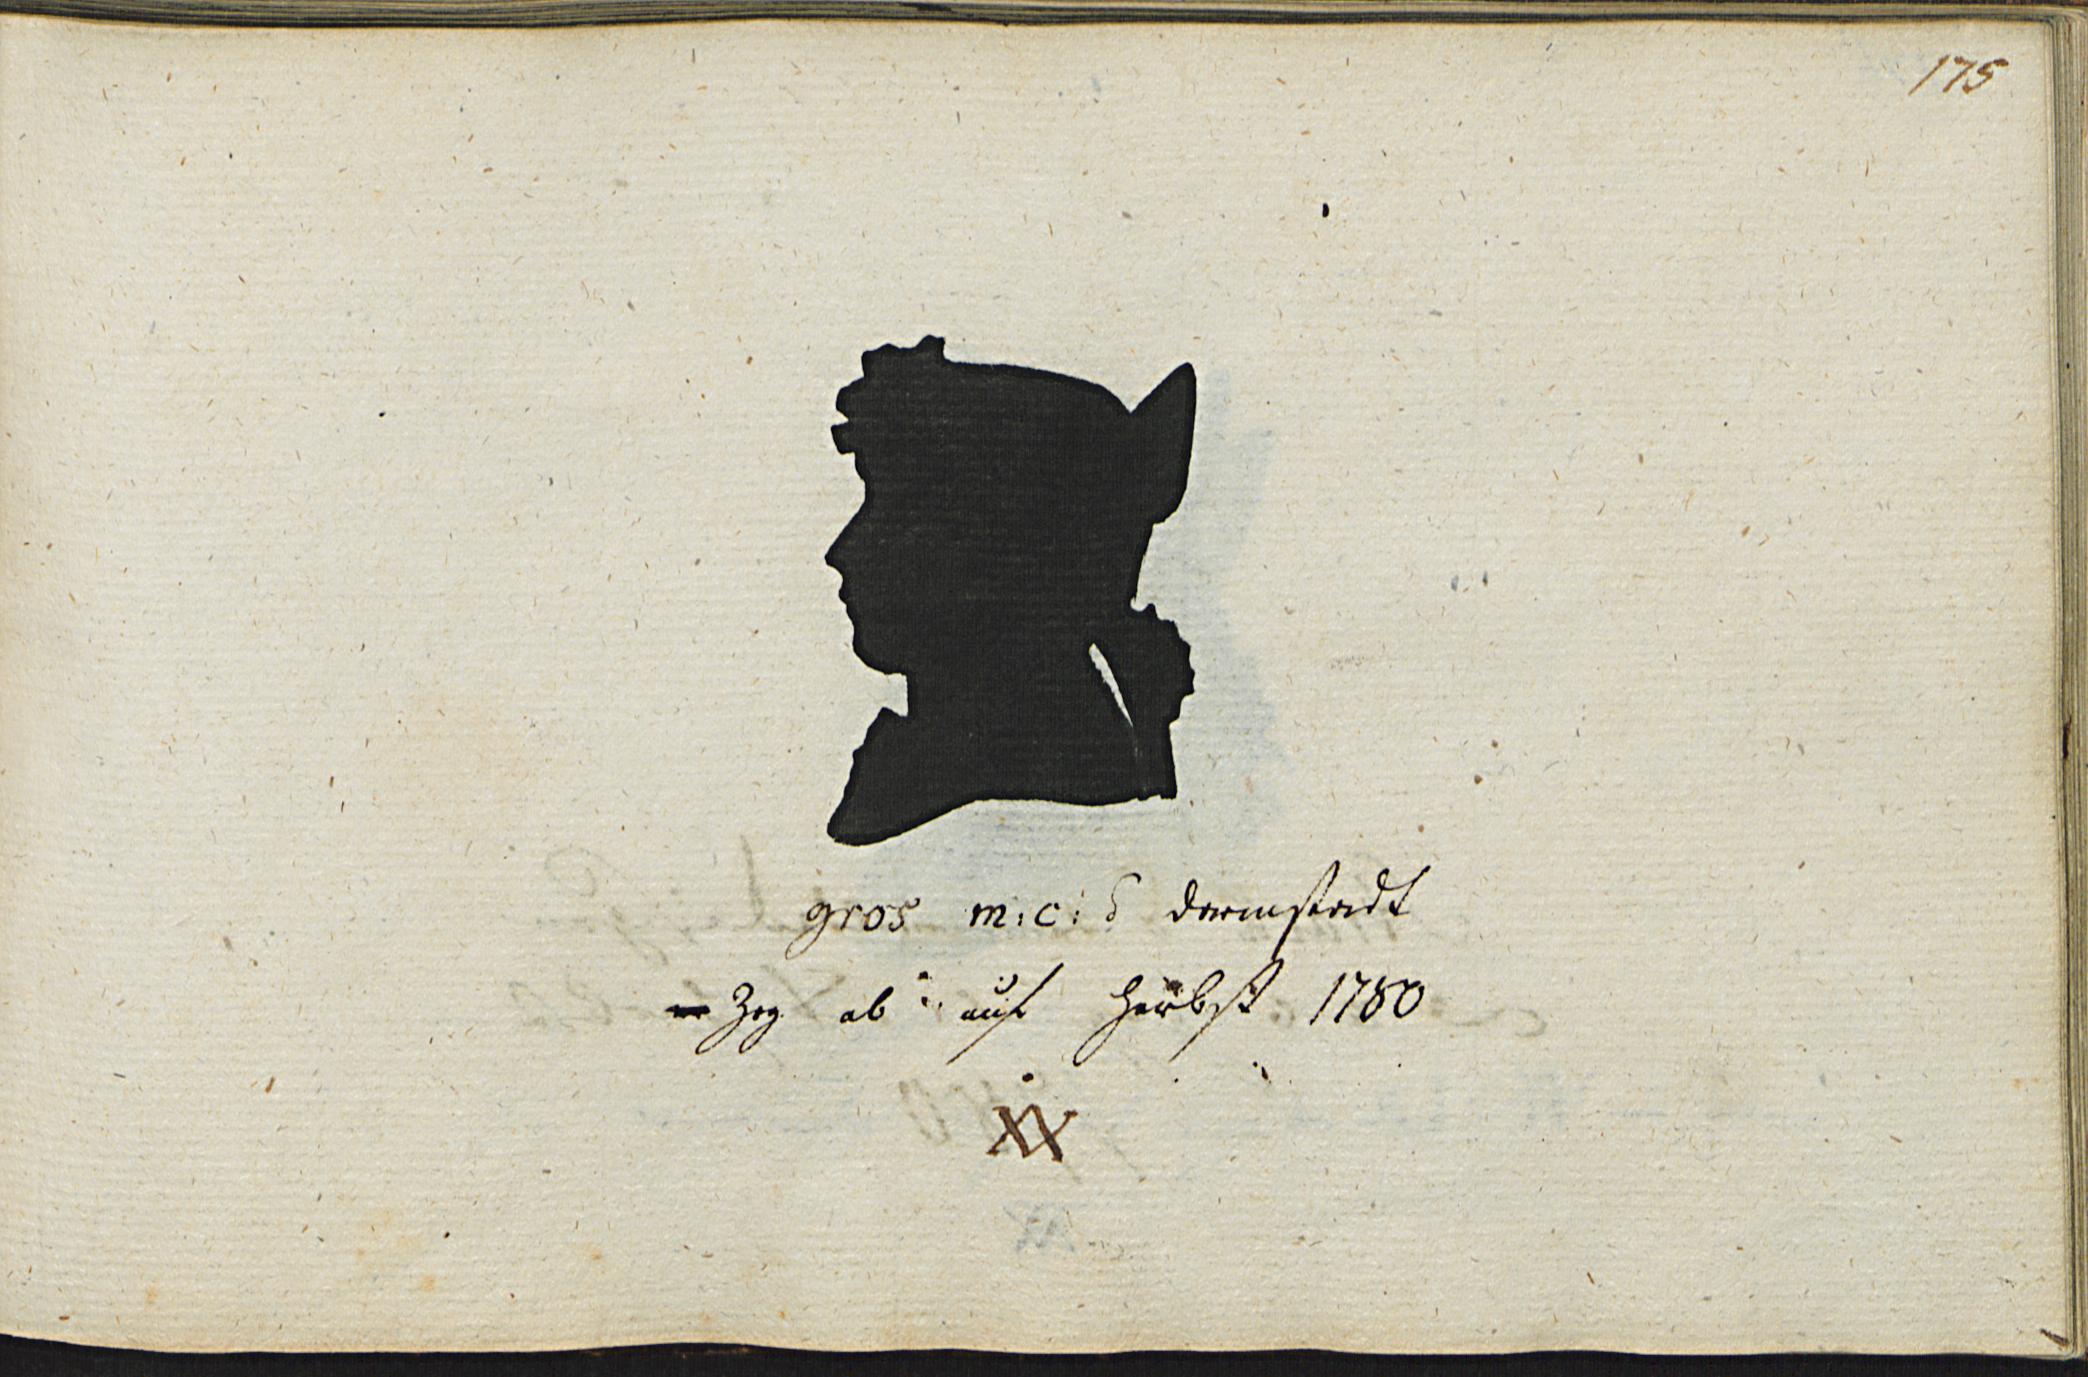 175
gros m: c: δ darmstadt
Zog ab auf Herbst 1780
XX